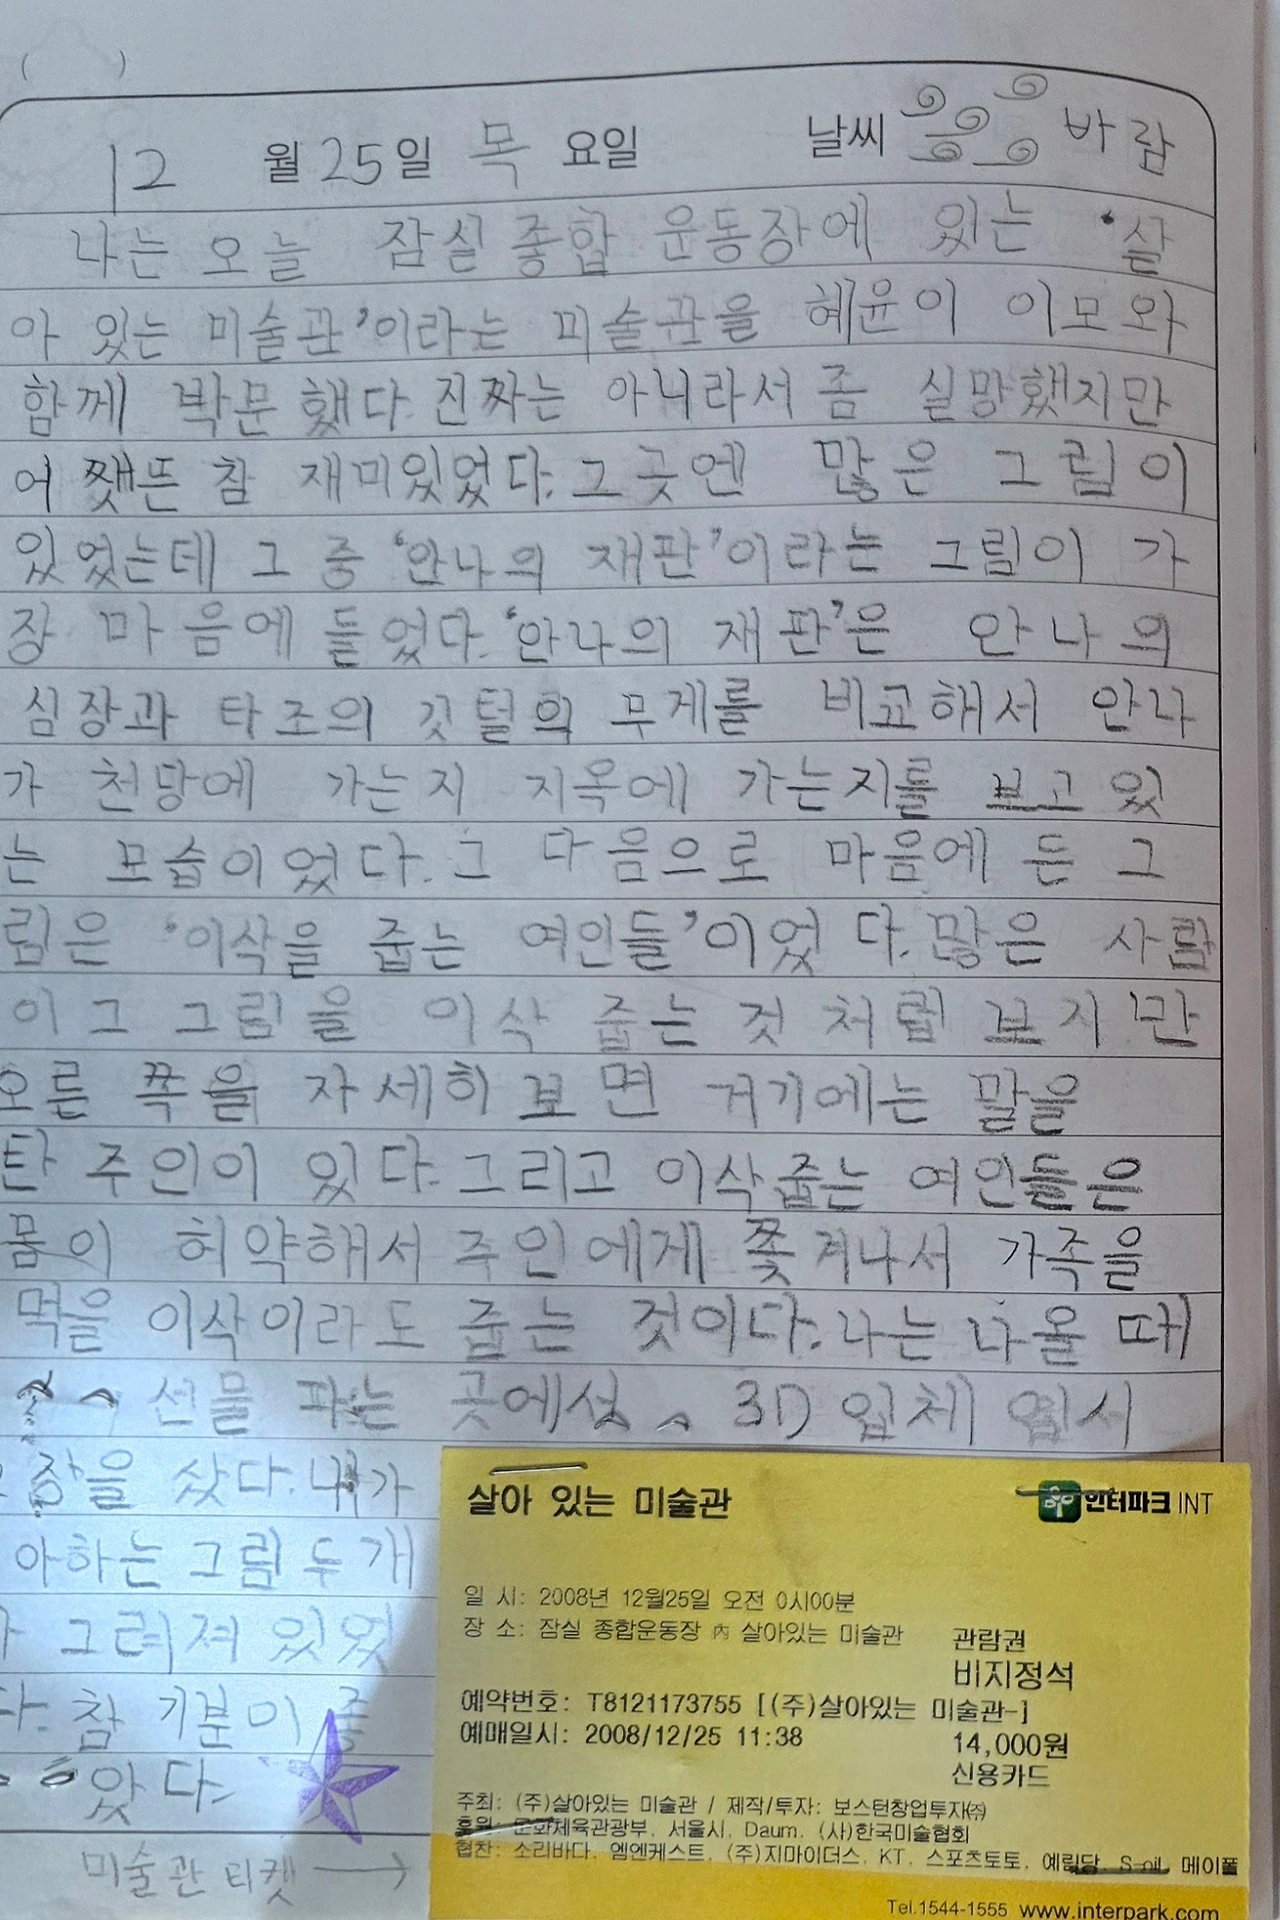 ( )
12 월 25 일 목 요일 날씨 바람
나는 오늘 잠실 종합 운동장에 있는 '살
아 있는 미술관'이라는 미술관을 혜윤이 이모와
함께 박문했다. 진짜는 아니라서 좀 실망했지만
어쨌뜬 참 재미있었다. 그 곳엔 많은 그림이
있었는데 그 중 '안나의 재판'이라는 그림이 가
장 마음에 들었다. '안나의 재판'은 안나의
심장과 타조의 깃털의 무게를 비교해서 안나
가 천당에 가는지 지옥에 가는지를 보고 있
는 모습이었다. 그 다음으로 마음에 든 그
림은 '이삭을 줍는 여인들'이었다. 많은 사람
이 그 그림을 이삭 줍는 것 처럼 보지만
오른 쪽을 자세히 보면 거기에는 말을
탄 주인이 있다. 그리고 이삭줍는 여인들은
몸이 허약해서 주인에게 쫓겨나서 가족을
먹을 이삭이라도 줍는 것이다. 나는 나올 때
선물 파는 곳에서 3D 입체 엽서
장을 샀다. 내가
아하는 그림 두 개
가 그려져 있었
다. 참 기분이 좋
았다.
미술관 티켓 →
살아 있는 미술관 인터파크 INT
일 시: 2008년 12월25일 오전 0시00분
장 소: 잠실 종합운동장 內 살아있는 미술관 관람권
비지정석
예약번호: T8121173755 [(주)살아있는 미술관-]
예매일시: 2008/12/25 11:38 14,000원
신용카드
주최: (주)살아있는 미술관 / 제작/투자: 보스턴창업투자㈜
후원: 문화체육관광부, 서울시, Daum, (사)한국미술협회
협찬: 소리바다, 엠엔케스트, (주)지마이더스, KT, 스포츠토토, 예림당, S-oil, 메이폴
Tel.1544-1555 www.interpark.com